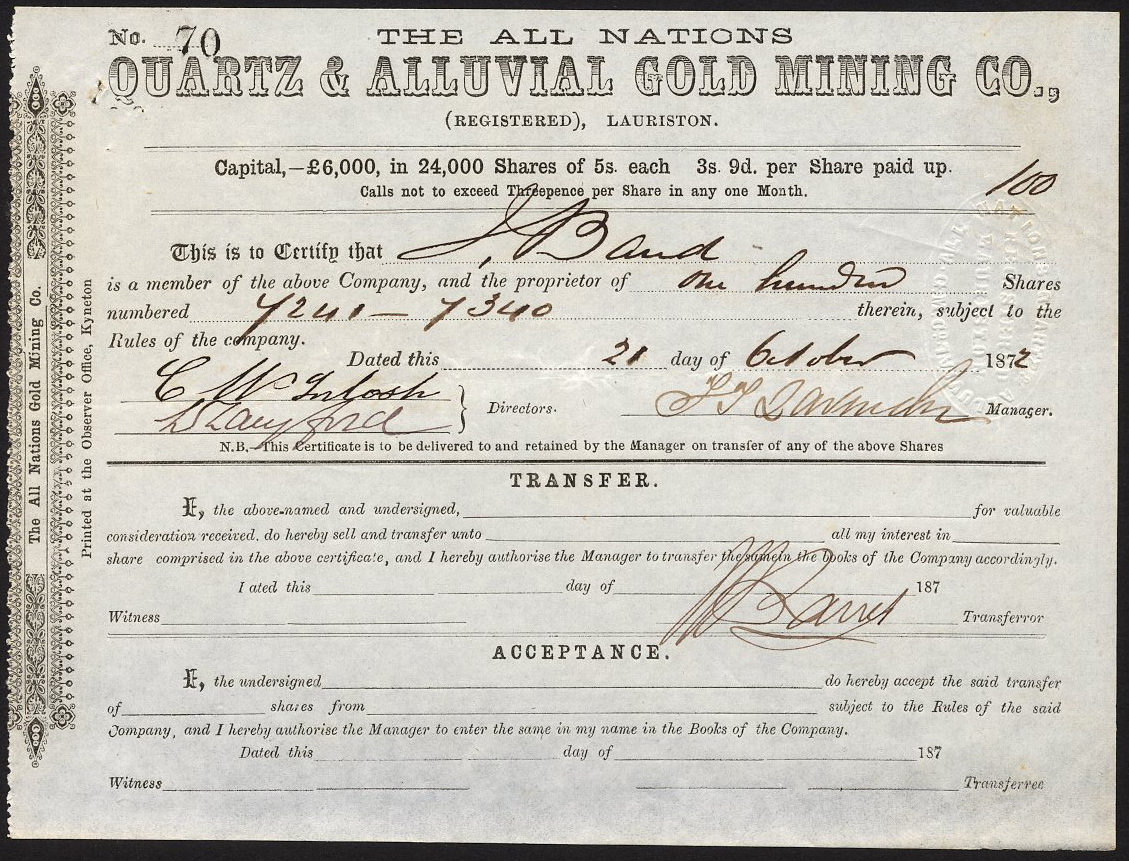 No. 70
THE ALL NATIONS
QUARTZ & ALLUVIAL GOLD MINING CO.,
(REGISTERED), LAURISTON.
Capital,—£6,000, in 24,000 Shares of 5s. each 3s. 9d. per Share paid up.
100
Calls not to exceed Threepence per Share in any one Month.
This is to Certify that J. Band
is a member of the above Company, and the proprietor of one hundred Shares
numbered 7241 — 7340 therein, subject to the
Rules of the company.
Dated this 21 day of October 1872
C McIntosh
Directors.
Manager.
N.B.—This Certificate is to be delivered to and retained by the Manager on transfer of any of the above Shares
TRANSFER.
I, the above-named and undersigned, for valuable
consideration received, do hereby sell and transfer unto all my interest in
share comprised in the above certificate, and I hereby authorise the Manager to transfer the same in the Books of the Company accordingly.
I ated this day of 187
Witness Transferror
ACCEPTANCE.
I, the undersigned do hereby accept the said transfer
of shares from subject to the Rules of the said
Company, and I hereby authorise the Manager to enter the same in my name in the Books of the Company.
Dated this day of 187
Witness Transferree
The All Nations Gold Mining Co.
Printed at the Observer Office, Kyneton